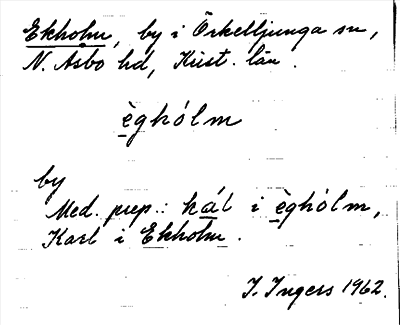 Ekholm, by i Örkelljunga sn,
N. Åsbo hd, Krist. län.
èghólm
by
Med. prep.: kál i èghólm,
Karl i Ekholm.
I. Ingers 1962.